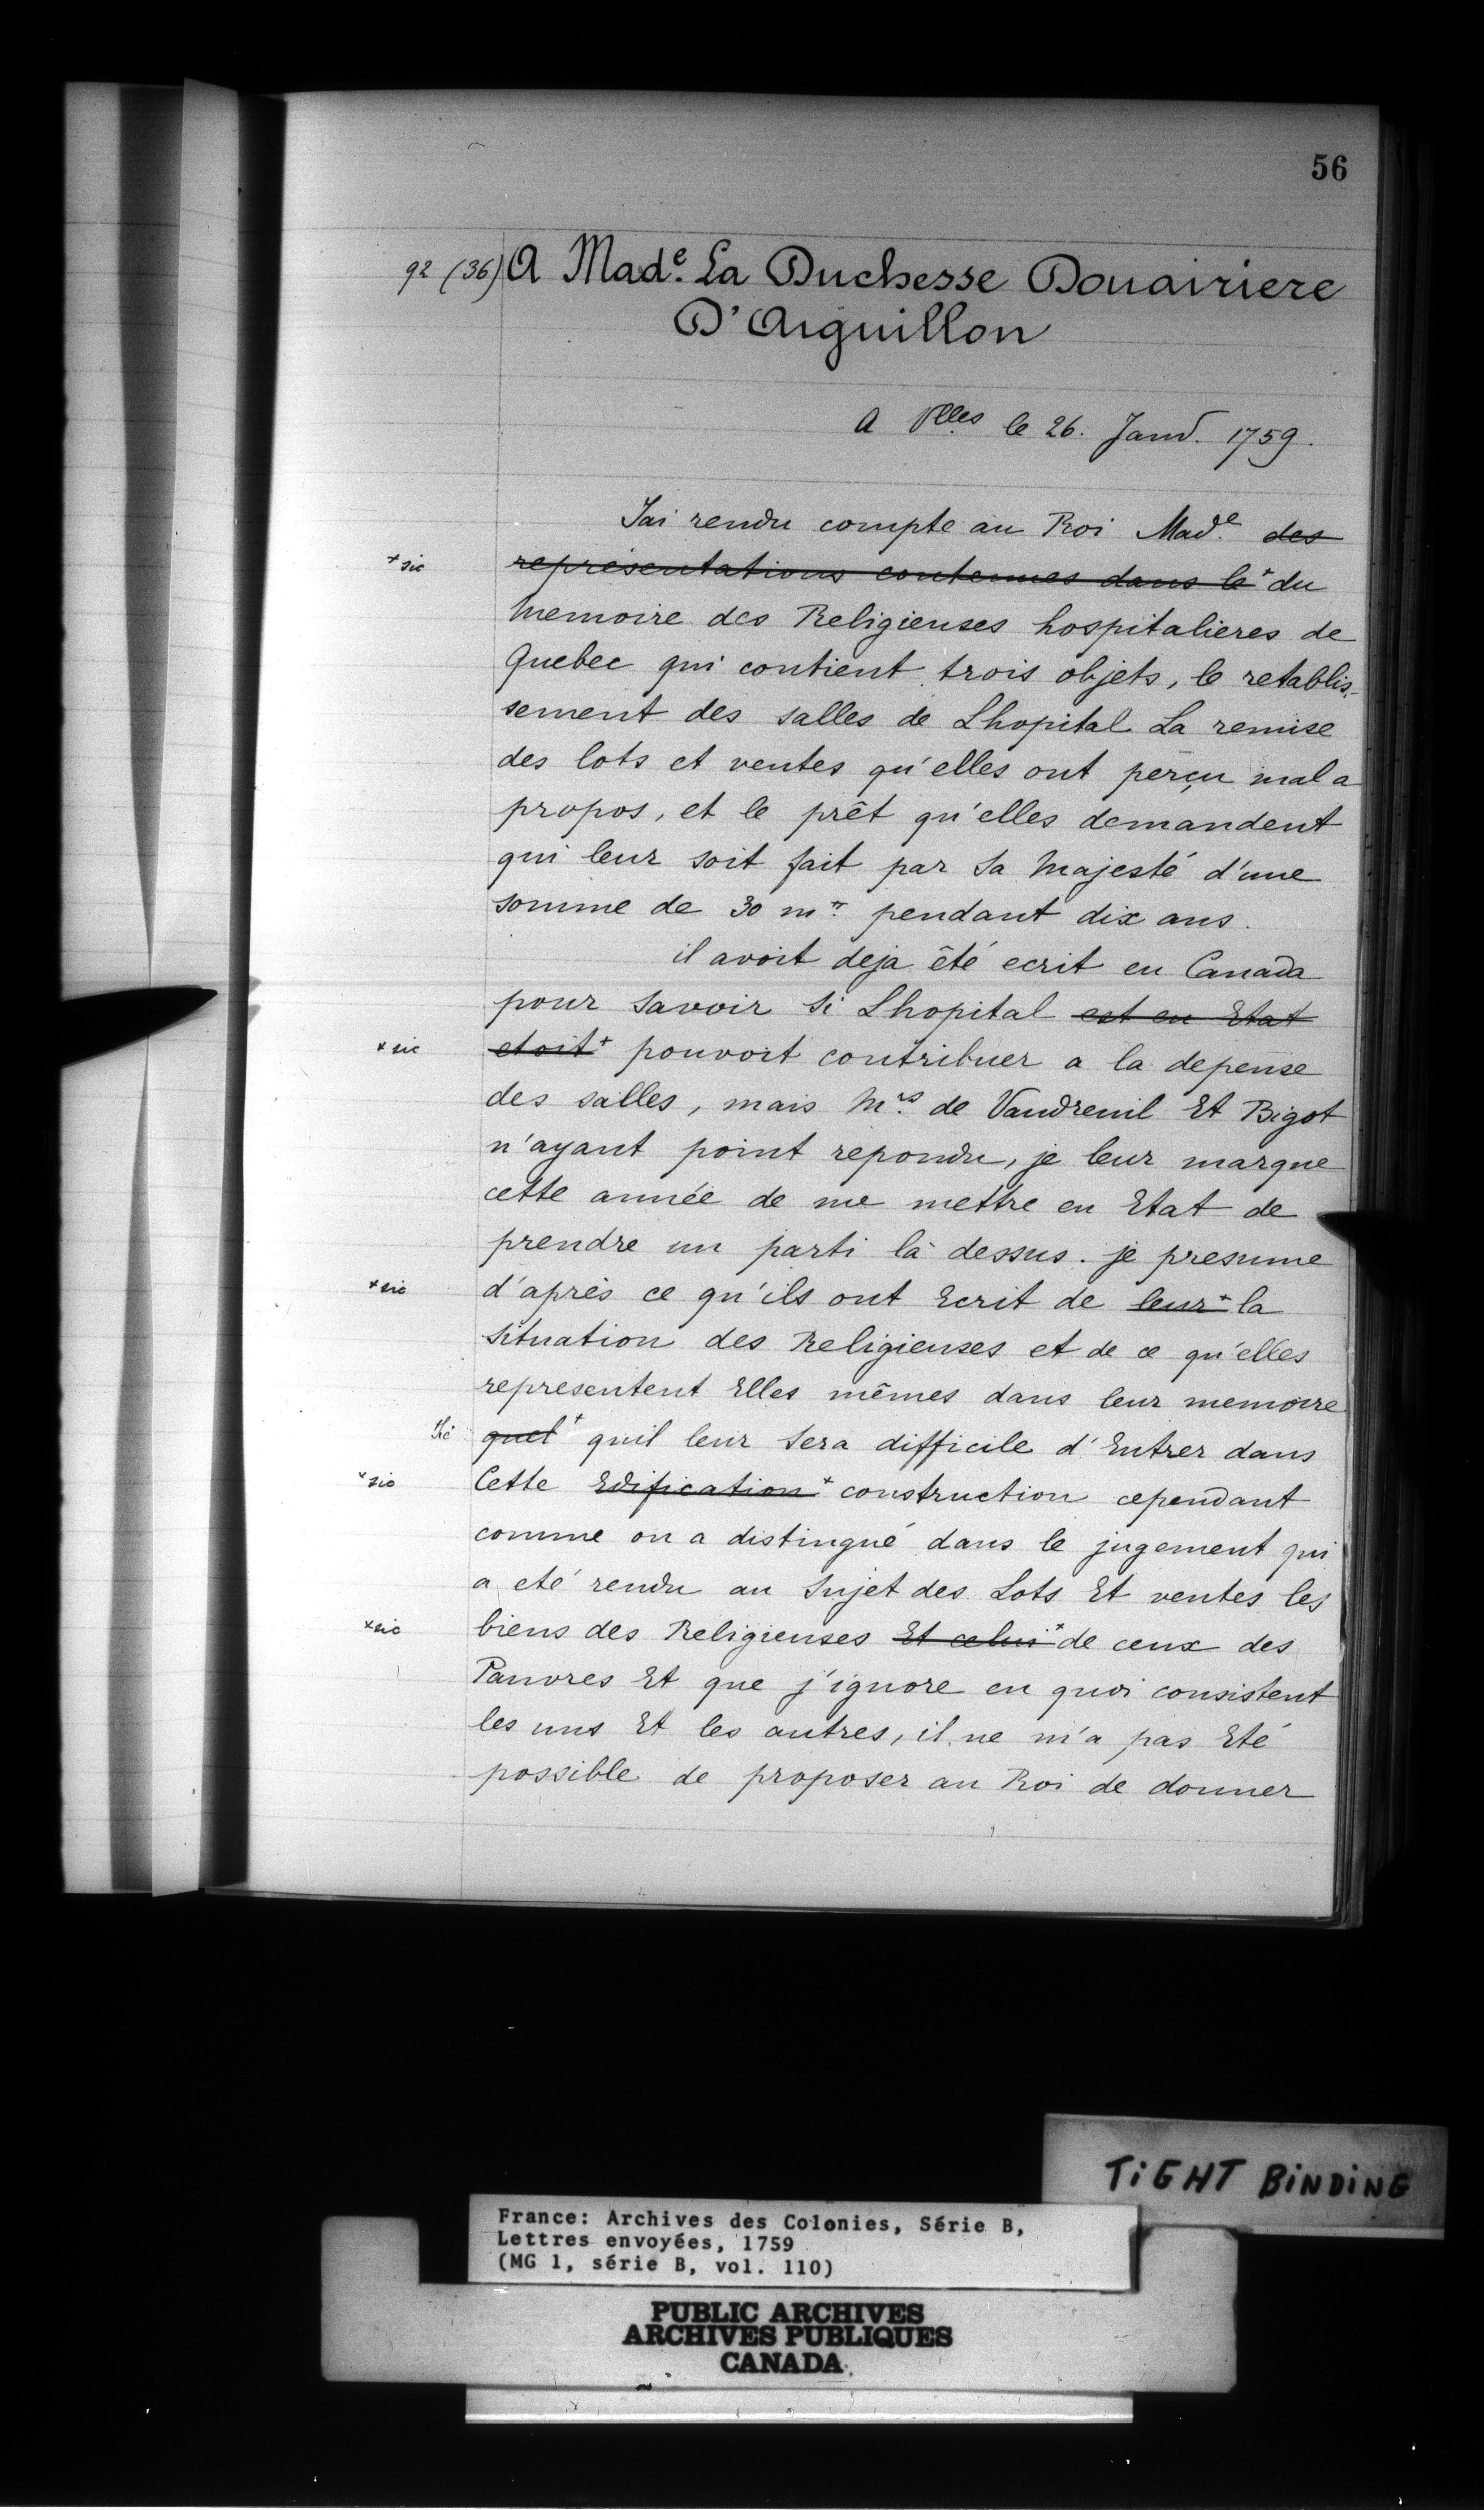 56
92 (36) A Made. La Duchesse Douairiere
D'Aiguillon
A Vlles le 26. Janv. 1759.
Jai rendu compte au Roi Made. des
+sic representations contenues dans le+ du
memoire des Religieuses hospitalieres de
Quebec qui contient trois objets, le retablis-
sement des salles de Lhopital La remise
des lots et ventes qu'elles ont perçu mal a
propos, et le prêt qu'elles demandent
qui leur soit fait par Sa Majesté d'une
somme de 30 m** pendant dix ans.
il avoit deja été ecrit en Canada
pour savoir si Lhopital est en Etat
+sic etoit+ pouvoit contribuer a la depense
des salles, mais Mrs. de Vaudreuil Et Bigot
n'ayant point repondu, je leur marque
cette année de me mettre en Etat de
prendre un parti là dessus. je presume
+sic d'après ce qu'ils ont Ecrit de leur+ la
situation des Religieuses et de ce qu'elles
representent Elles mêmes dans leur memoire
+sic quel+ quil leur sera difficile d'Entrer dans
+sic Cette Edification+ construction cependant
comme on a distingué dans le jugement qui
a eté rendu au sujet des Lots Et ventes les
+sic biens des Religieuses Et celui+ de ceux des
Pauvres Et que j'ignore en quoi consistent
les uns Et les autres, il ne m'a pas Eté
possible de proposer au Roi de donner
TiGHT BiNDiNG
France: Archives des Colonies, Série B,
Lettres envoyées, 1759
(MG 1, série B, vol. 110)
PUBLIC ARCHIVES
ARCHIVES PUBLIQUES
CANADA